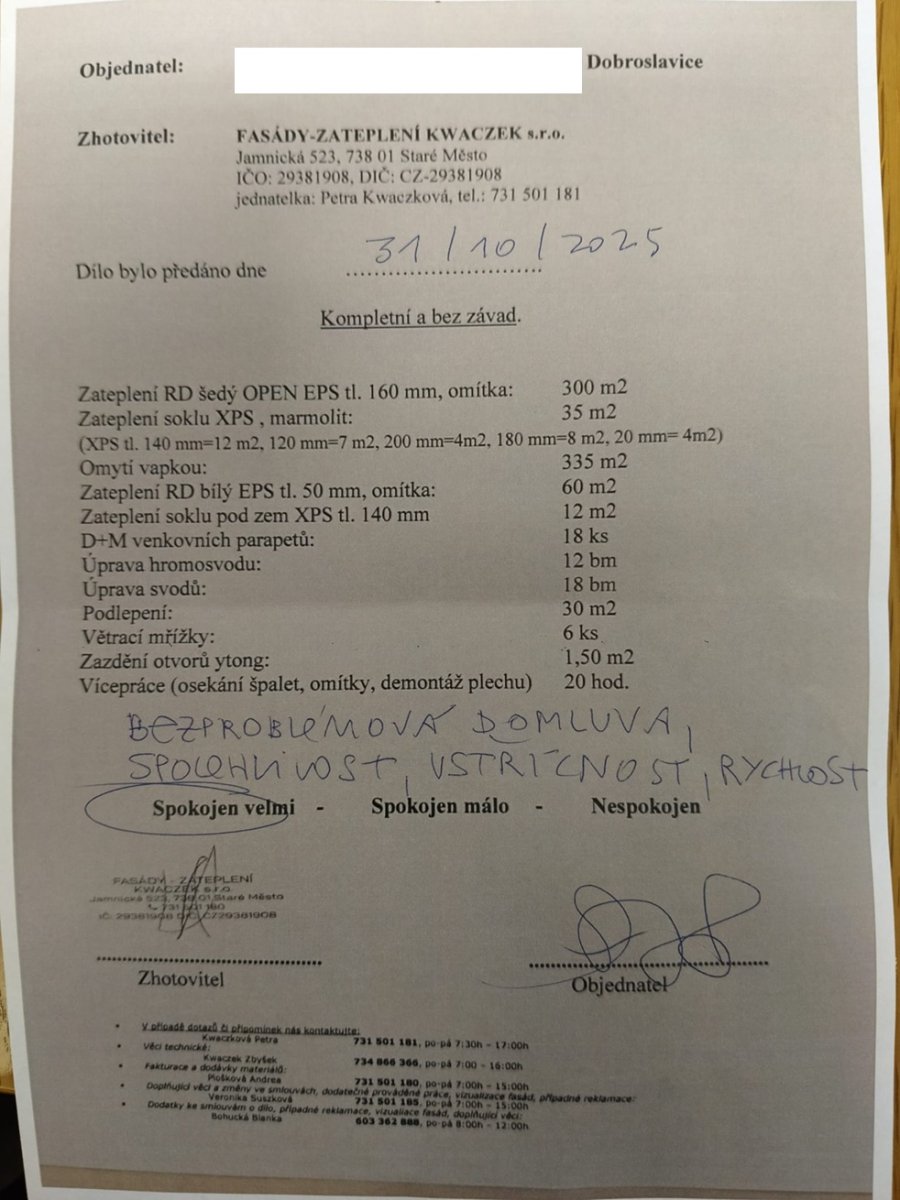 Objednatel: Dobroslavice
Zhotovitel: FASÁDY-ZATEPLENÍ KWACZEK s.r.o.
Jamnická 523, 738 01 Staré Město
IČO: 29381908, DIČ: CZ-29381908
jednatelka: Petra Kwaczková, tel.: 731 501 181
Dílo bylo předáno dne 31/10/2025
Kompletní a bez závad.
Zateplení RD šedý OPEN EPS tl. 160 mm, omítka: 300 m2
Zateplení soklu XPS , marmolit: 35 m2
(XPS tl. 140 mm=12 m2, 120 mm=7 m2, 200 mm=4m2, 180 mm=8 m2, 20 mm= 4m2)
Omytí vapkou: 335 m2
Zateplení RD bílý EPS tl. 50 mm, omítka: 60 m2
Zateplení soklu pod zem XPS tl. 140 mm 12 m2
D+M venkovních parapetů: 18 ks
Úprava hromosvodu: 12 bm
Úprava svodů: 18 bm
Podlepení: 30 m2
Větrací mřížky: 6 ks
Zazdění otvorů ytong: 1,50 m2
Vícepráce (osekání špalet, omítky, demontáž plechu) 20 hod.
BEZPROBLÉMOVÁ DOMLUVA,
SPOLEHLIVOST, VSTŘÍCNOST, RYCHLOST
Spokojen velmi - Spokojen málo - Nespokojen
FASÁDY - ZATEPLENÍ
KWACZEK s.r.o.
Jamnická 523, 738 01 Staré Město
731 501 180
IČ: 29381908 DIČ: CZ29381908
Zhotovitel Objednatel
• V případě dotazů či připomínek nás kontaktujte:
Kwaczková Petra 731 501 181, po-pá 7:30h - 17:00h
• Věci technické:
Kwaczek Zbyšek 734 866 366, po-pá 7:00 - 16:00h
• Fakturace a dodávky materiálů:
Plošková Andrea 731 501 180, po-pá 7:00h - 15:00h
• Doplňující věci a změny ve smlouvách, dodatečně prováděné práce, vizualizace fasád, případné reklamace:
Veronika Suszková 731 501 185, po-pá 7:00h - 15:00h
• Dodatky ke smlouvám o dílo, případné reklamace, vizualiace fasád, doplňující věci:
Bohucká Blanka 603 362 888, po-pá 8:00h - 12:00h